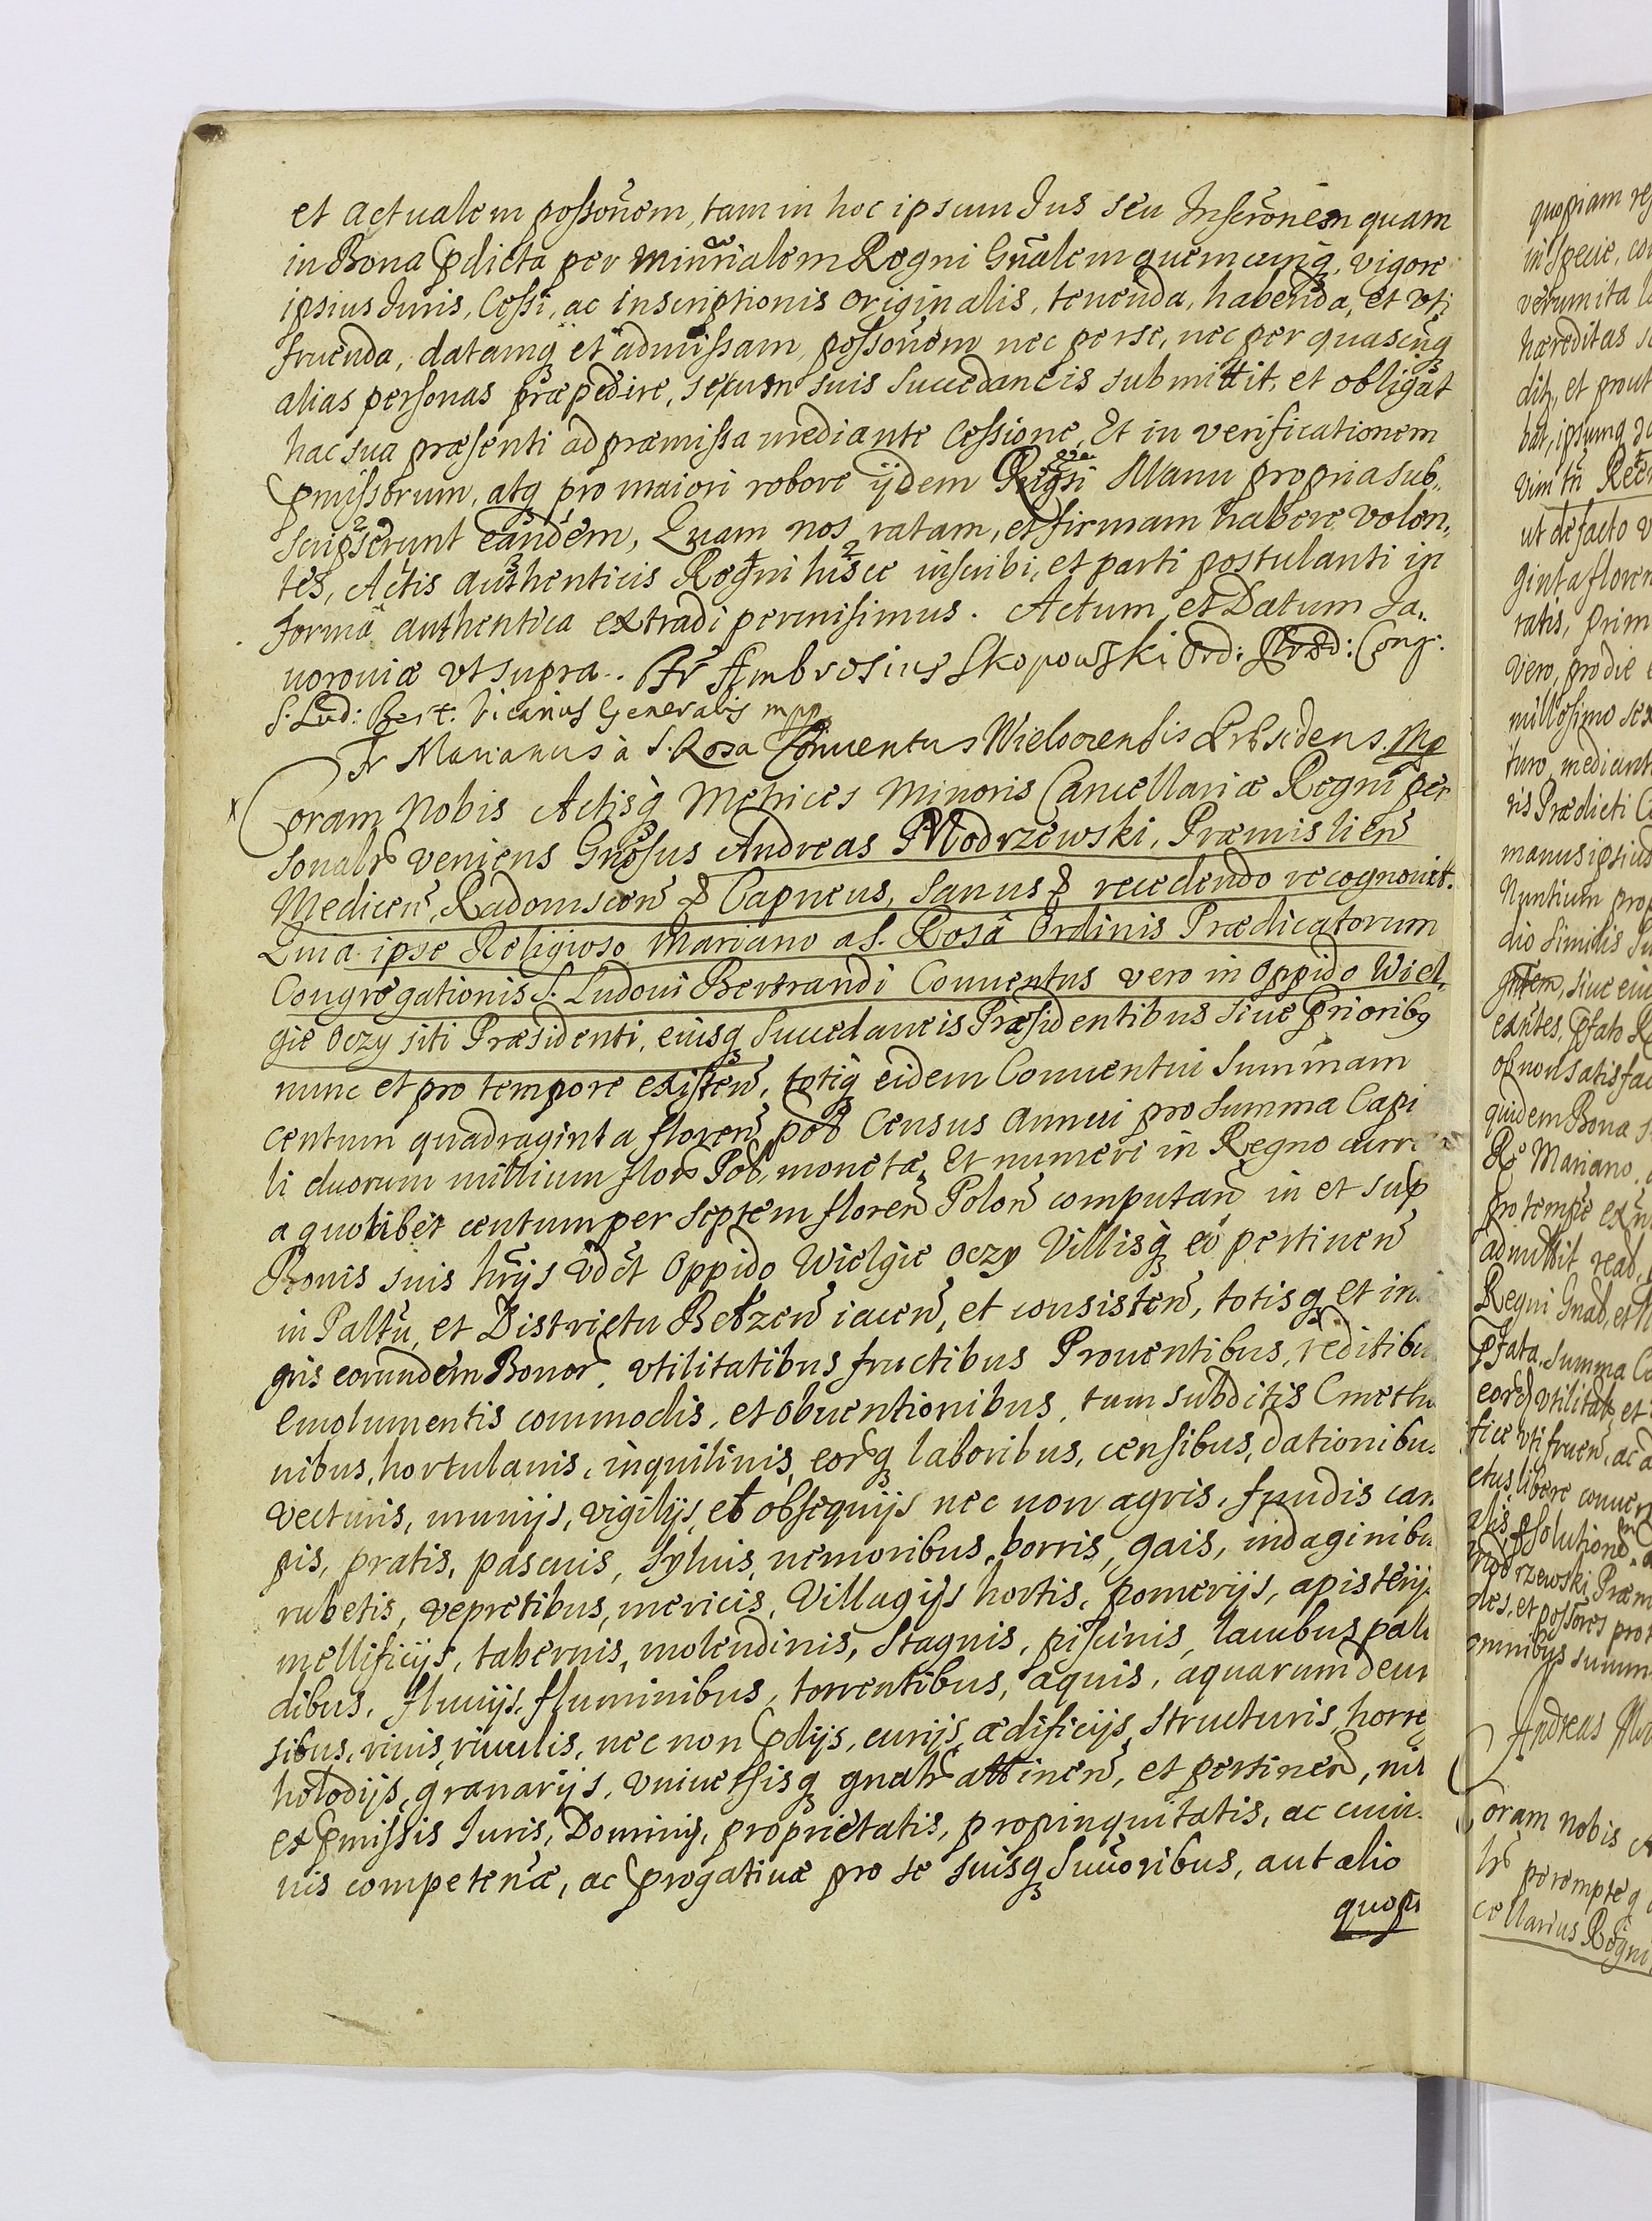 et actualem possonem, tam in hoc ipsum Jus seu Inscronem quam
in Bona pdicta per minrialem Regni Gnalem quemcunq, vigore
ipsius Juris, Cessi, ac inscriptionis originalis, tenenda, habenda, et vti
fruenda, datamq et admissam possonem nec per se, nec per quascunq
alias personas præpedire, se cum suis Succedaneis submittit, et obligat
hac sua præsenti ad præmissa mediante Cessione, Et in verificationem
pmissorum, atq pro maiori robore ijdem Manu propria sub,,
scripserunt eandem, Quam nos ratam, et firmam habere volen,,
tes, Actis authenticis Regni hisce inscribi, et parti postulanti in
forma authentica extradi permisimus. Actum et Datum Ja,,
uorouiæ vt supra. Fr Ambrosius Skopowski Ord: Præd: Cong:
S. Lud: Bert. Vicarius Generalis mpp
Fr Marianus à S. Rosa Conuentus Wielooczensis Præsidens. Mp
Coram Nobis Actisq Metrices Minoris Cancellariæ Regni per
sonalr veniens Gnosus Andreas Modrzewski, Præmislien
Medicen, Radomscen & Capneus, sanus & recedendo recognouit.
Quia ipse Religioso Mariano a S. Rosâ Ordinis Prædicatorum
Congregationis S. Ludoui Bertrandi Conuentus vero in Oppido Wiel,,
gie Oczy siti Præsidenti, eiusq Succedaneis Præsidentibus siue Prioribq
nunc et pro tempore existen, totiq eidem Conuentui Summam
centum quadraginta floren pol Census annui pro Summa Capi
li duorum millium flor Pol, monetæ et numeri in Regno curr
a quolibet centum per septem floren Polon computan in et sup
Bonis suis hrijs vdct Oppido Wielgie Oczy Villisq eo pertinen
in Paltu, et Districtu Bełzen iacen, et consisten, totisq et in
gris eorundem Bonor, vtilitatibus fructibus Prouentibus, reditibu
emolumentis commodis, et obuentionibus, tum subditis Cmetho
nibus, hortulanis, inquilinis, eorq laboribus, censibus, dationibus
vecturis, munijs, vigilijs, et obsequijs nec non agris, fundis cam
pis, pratis, pascuis, syluis, nemoribus, borris, gais, indaginibu
rubetis, vepretibus, mericis, Villagijs hortis, pomerijs, apisterijs
mellificijs, tabernis, molendinis, stagnis, piscinis, lacubus palu
dibus, fluuijs, fluminibus, torrentibus, aquis, aquarum decur
sibus, riuis, riuulis, nec non pdijs, curijs, ædificijs, structuris, horre
holodijs, granarijs, vniuersisq gnalr attinen, et pertinen, nil
ex pmissis Juris, Dominij, proprietatis, propinquitatis, ac
nis competenæ, ac progatiuæ pro se suisq Sucoribus, aut alio
quopi
quopiam
in specie, con
verum ita l
hæreditas
dit, et prout
bat, ipsumq
vim
ut de facto v
ginta floren
ratis, prim
vero, pro die
millesimo
turo, mediant
ris Prædicti C
manus ipsius
Nuntium prop
dio similis
siue eiu
exntes, pfato
ob non satisfac
quidem Bona
Ro Mariano
pro tempe exn
admittit, real
Regni Gnal, et
pfata summa Ca
eord vtilitat, et
fice vti fruen, ac
ctus, libere conuer
alis, psolutione
Modrzewski Præm
des, et possores pro
omnibus summ
Andreas Mo
Coram nobis A
lr perempte q
cellarius Regni